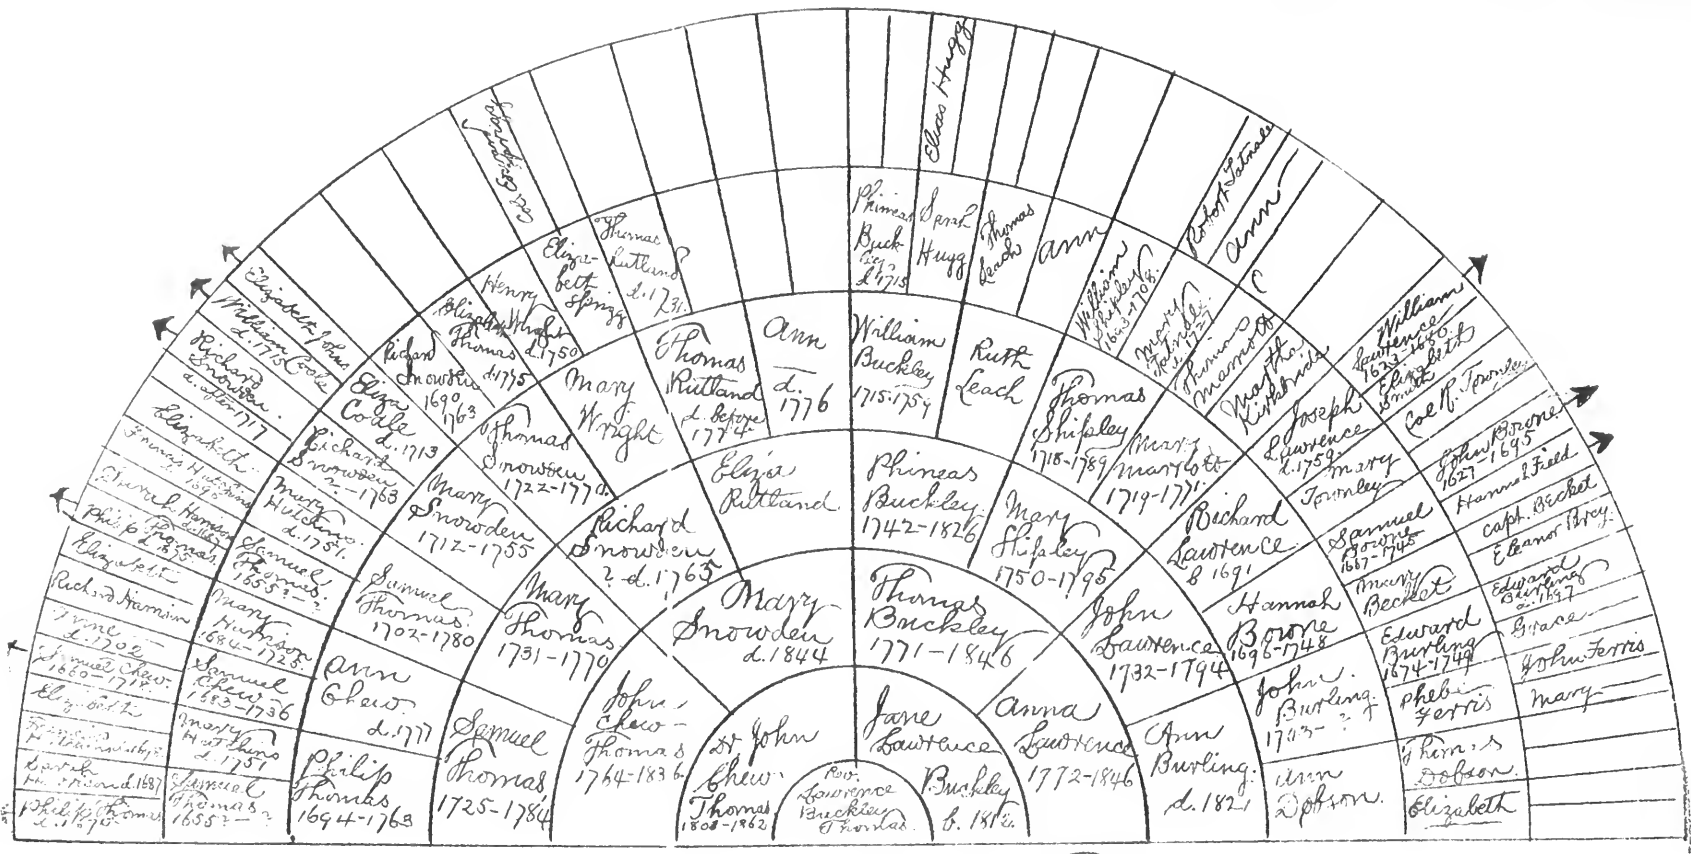 Rev.
Lawrence
Buckley
Thomas.
Dr. John
Chew
Thomas
Jane
Lawrence
Buckley
John
Chew
Thomas
1764-1836
Mary
Snowden
d. 1844
Thomas
Buckley
1771-1846
Anna
Lawrence
1772-1846
Samuel
Thomas
1725-1784
Mary
Thomas
1731-1770
Richard
Snowden
? d. 1765
Eliza
Rutland
Phineas
Buckley
1742-1826
Mary
Shipley
1750-1795
John
Lawrence
1732-1794
Ann
Burling.
d. 1821
Philip
Thomas
1694-1763
Ann
Chew.
d. 1777
Samuel
Thomas
1702-1780
Mary
Snowden
1712-1755
Thomas
Snowden
Mary
Wright
Thomas
Rutland
d. before
1774
Ann
d.
1776
William
Buckley
Ruth
Leach
Thomas
Shipley
1718-1789
Mary
Marriott
1719-1771
Richard
Lawrence
b 1691
Hannah
Bowne
1696-1748
John
Burling
Ann
Dobson.
Samuel
Thomas
1655? - ?
Mary
Hutchins
d. 1751
Samuel
Chew
Mary
Harrison
1684-1725
Samuel
Thomas
1655? - ?
Mary
Hutchins
d. 1751.
Richard
Snowden
? -1763
Eliza
Coale
d. 1713
Richard
Snowden
1690
1763
Elizabeth
Thomas
Henry
Wright
d. 1750
Eliza-
beth
Sprigg
Thomas
Rutland?
d. 1731.
Phineas
Buck-
ley
d 1715
Sarah
Hugg
Thomas
Leach
Ann
William
Shipley
Mary
Tatnall
d. 1727
Thomas
Marriott
Martha
Kirkbride
Joseph
Lawrence
d. 1759.
Mary
Townley
Samuel
Bowne
1667-1745
Mary
Becket
Edward
Burling
1674-1749
Phebe
Ferris
Thomas
Dobson
Elizabeth
Philip Thomas
Sarah
Harrison d. 1687
Elizabeth
Samuel Chew.
d. 1702
Richard Harrison
Elizabeth
Philip Thomas
Sarah Harrison
Elizabeth
Richard
Snowden.
d. after 1717
William Coale
d. 1715
Elizabeth Johns
Elias Hugg
Robert Tatnall
Ann
William
Lawrence
Eliza-
beth
Smith
Col R. Townley
John Bowne
1627-1695
Hannah Field
Capt. Becket
Eleanor Brey.
Edward
Burling
d. 1697
Grace
John Ferris
Mary